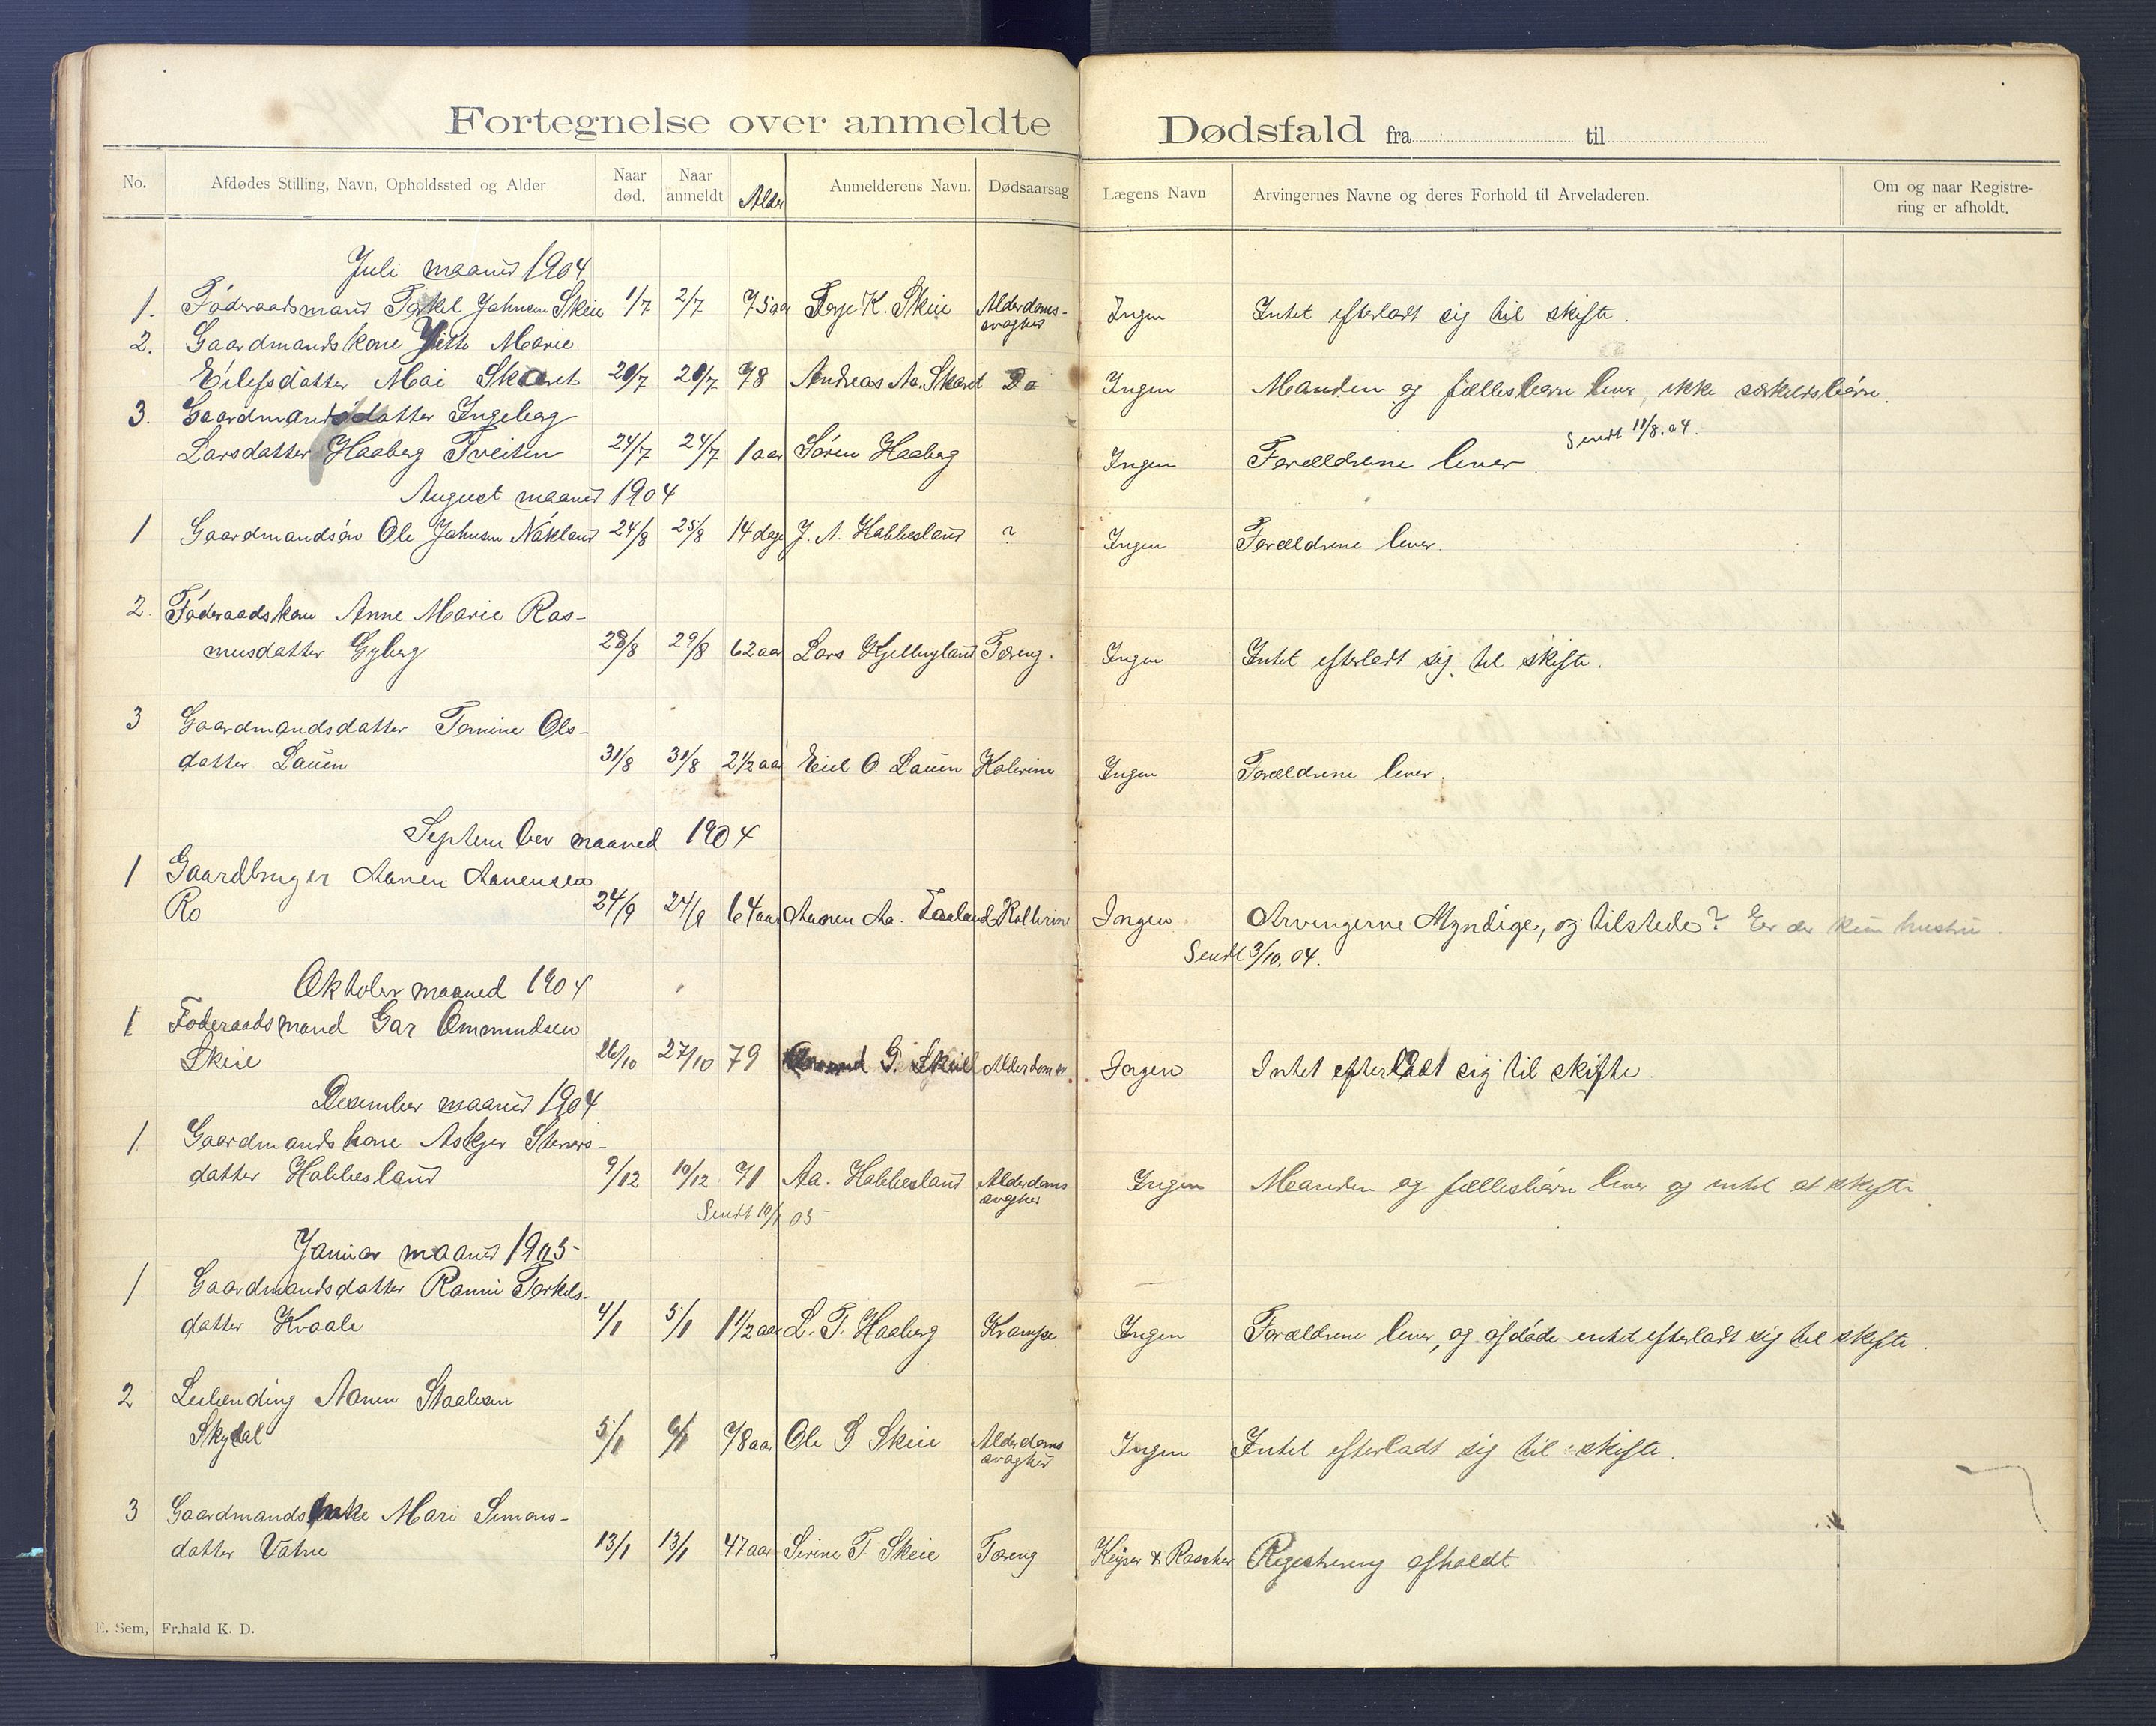 Fortegnelse over anmeldte Dødsfald fra til
No. Afdødes Stilling, Navn, Opholdssted og Alder. Naar død. Naar anmeldt Alder Anmelderens Navn. Dødsaarsag Lægens Navn Arvingernes Navne og deres Forhold til Arveladeren. Om og naar Registrering er afholdt.
Juli maaned 1904
1. Føderaadsmand Torkel Jahnsen Skeie 1/7 2/7 75 aar Terje K. Skeie Alderdoms-svaghed Ingen Intet efterladt sig til skifte.
2. Gaardmandskone Gitte Marie
Eilefsdatter Moi Skaaret 20/7 20/7 78 Andreas Aa. Skaret Do Ingen Manden og fællesbørn lever, ikke særkuldsbørn.
Sendt 11/8.04.
3. Gaardmandsdatter Ingeborg
Larsdatter Haaberg Tveiten 24/7 24/7 1 aar Søren Haaberg Ingen Forældrene lever.
August maaned 1904
1 Gaardmandsøn Ole Jahnsen Nøkland 24/8 25/8 14 dage J. A. Habbesland ? Ingen Forældrene lever.
2. Føderaadskone Anne Marie Ras-
musdatter Gyberg 28/8 29/8 62 aar Lars Kjellingland Tæreng. Ingen Intet efterladt sig til skifte.
3 Gaardmandsdatter Tomine Ols-
datter Lauen 31/8 31/8 2 1/2 aar Eiel O. Lauen Kolerine Ingen Forældrene lever.
September maaned 1904
1 Gaardbruger Aanen Aanensen
Ro 24/9 24/9 64 aar Aanen Aa. Faaland Kollerine Ingen Arvingerne Myndige, og tilstede? Er der kun hustru.
Sendt 3/10.04.
Oktober maaned 1904
1 Føderaadsmand Gar Ommundsen
Skeie 26/10 27/10 79 G. Skeie Alderdomsv. Ingen Intet efterladt sig til skifte.
Desember maaned 1904
1. Gaardmandskone Askjer Steners-
datter Habbesland 9/12 10/12 71 Aa. Habbesland Alderdoms svaghed Ingen Manden og fællesbørn lever og intet at skifte.
Sendt 10/1 05
Januar maaned 1905
1. Gaardmandsdatter Ranni Torkels-
datter Kvaale 4/1 5/1 1 1/2 aar L. T. Haaberg Krampe Ingen Forældrene lever, og afdøde intet efterladt sig til skifte.
2 Leilending Aanen Staalesen
Skydal 5/1 6/1 78 aar Ole G. Skeie Alderdoms svaghed Ingen Intet efterladt sig til skifte.
3 Gaardmandsenke Mari Simons-
datter Vatne 13/1 13/1 47 aar Sirine T. Skeie Tæreng Keyser & Registrering afholdt
E. Sem, Fr.hald K. D.